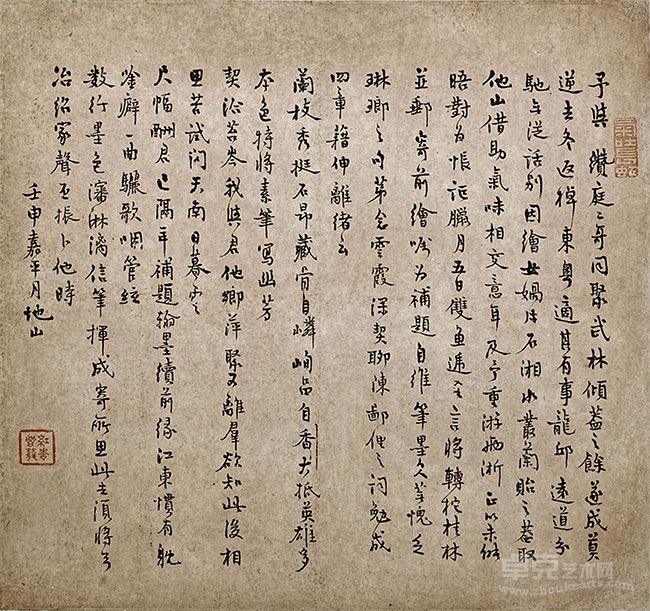 予與讚庭二哥同聚武林傾蓋之餘遂成莫
逆去冬返棹東粵適其有事龍邱遠道分
馳与從話別因繪女媧片石湘水叢蘭貽之蓋取
他山借助氣味相交意耳及予重游西浙正以未似
晤對為悵詎臘月五日雙魚遞至言將轉柁桂林
並郵寄前繪囑為補題自維筆墨久荒愧乏
琳瑯之句第念雲霞深契聊陳鄙俚之詞勉成
四章藉伸離緒云
蘭枝秀挺石昂藏骨自嶙峋品自香大抵英雄多
本色特將素筆寫幽芳
契洽苔岑我與君他鄉萍聚又離羣欲知此後相
思苦試問天南日暮雲
尺幅酬君已隔年補題翰墨續前緣江東慣有耽
吟癖一曲驪歌咽管絃
數行墨色瀋淋漓信筆揮成寄所思此去須將弓
冶紹家聲丕振卜他時
壬申嘉平月地山
卓克艺术网
www.zhoukearts.com